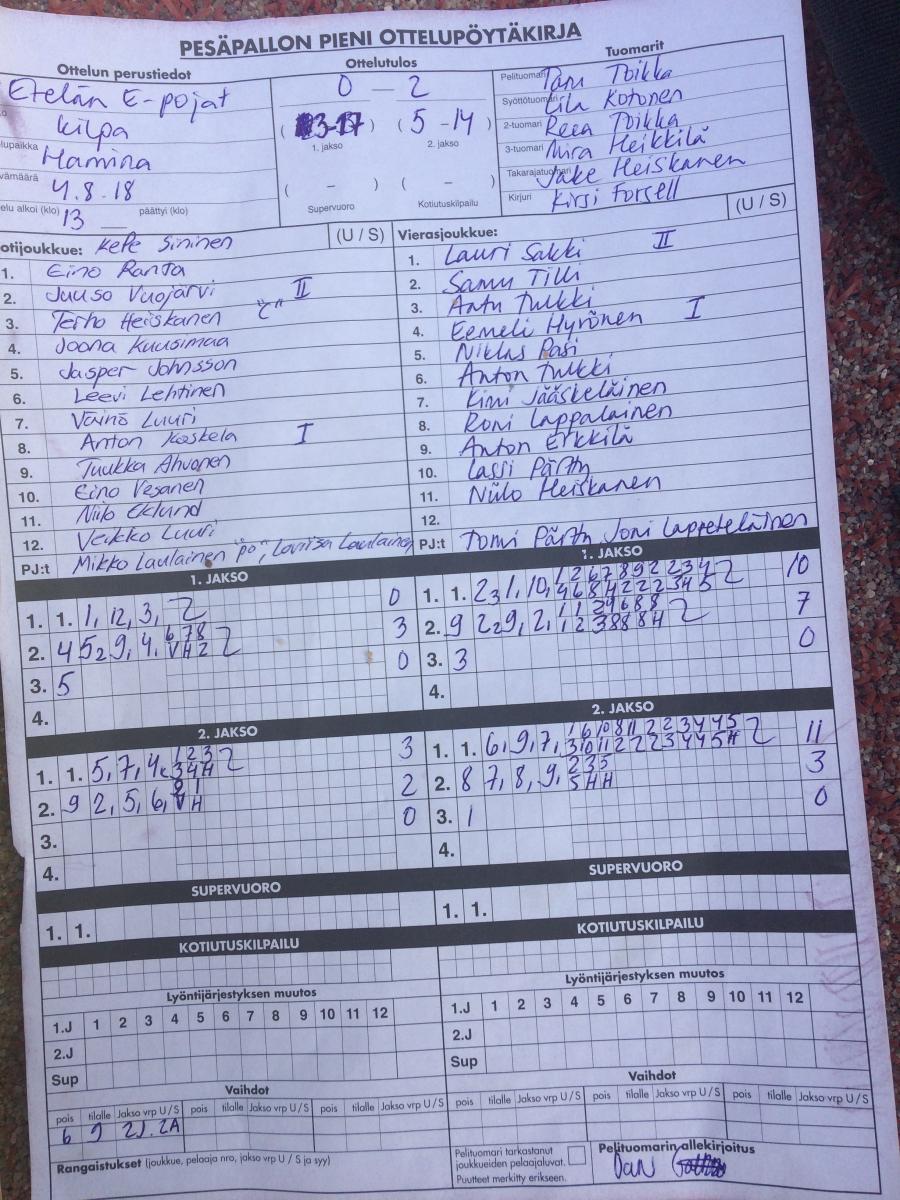 PESÄPALLON PIENI OTTELUPÖYTÄKIRJA
Ottelun perustiedot
Etelän E-pojat
Kilpa
Hamina
4.8.18
13
päättyi (klo)
Ottelutulos
0 - 2
(3-17) (5-14)
1. jakso 2. jakso
( - ) ( - )
Supervuoro Kotiutuskilpailu
Tuomarit
Pelituomari Toikka
Syöttötuomari Kotonen
2-tuomari Reea Toikka
3-tuomari Mira Heikkilä
Takarajatuomari Jake Heiskanen
Kirjuri Kirsi Forsell
Kotijoukkue: KePe Sininen (U / S)
1. Eino Ranta
2. Juuso Vuojärvi II
3. Terho Heiskanen "C"
4. Joona Kuusimaa
5. Jasper Johnsson
6. Leevi Lehtinen
7. Väinö Luuri
8. Anton Koskela I
9. Tuukka Ahvonen
10. Eino Vesanen
11. Niilo Eklund
12. Veikko Luuri
PJ:t Mikko Laulainen "po", Lovissa Laulainen
Vierasjoukkue: (U / S)
1. Lauri Sakki II
2. Samu Tilli
3. Antu Tulkki
4. Eemeli Hyrönen I
5. Niklas Pasi
6. Anton Tulkki
7. Kimi Jääskeläinen
8. Roni Lappalainen
9. Anton Erkkilä
10. Lassi Pärtty
11. Niilo Heiskanen
12.
PJ:t Tomi Pärtty Joni Lappeteläinen
1. JAKSO
1. 1. 1, 12, 3, 0
2. 4 5 2 9, 4, 6 7 8 3
3. 5 0
4.
1. JAKSO
1. 1. 10
2. 9 7
3. 3 0
4.
2. JAKSO
1. 1. 5, 7, 4 3
2. 9 2, 5, 6, 2
3. 0
4.
2. JAKSO
1. 1. 6, 9, 7, 11
2. 8 7, 8, 9, 3
3. 1 0
4.
SUPERVUORO
1. 1.
SUPERVUORO
1. 1.
KOTIUTUSKILPAILU
KOTIUTUSKILPAILU
Lyöntijärjestyksen muutos
1.J 1 2 3 4 5 6 7 8 9 10 11 12
2.J
Sup
Lyöntijärjestyksen muutos
1.J 1 2 3 4 5 6 7 8 9 10 11 12
2.J
Sup
Vaihdot
pois tilalle Jakso vrp U / S pois tilalle Jakso vrp U / S pois tilalle Jakso vrp U / S
6 9 2J. 2A
Vaihdot
pois tilalle Jakso vrp U / S pois tilalle Jakso vrp U / S pois tilalle Jakso vrp U / S
Rangaistukset (joukkue, pelaaja nro, jakso vrp U / S ja syy)
Pelituomari tarkastanut
joukkueiden pelaajaluvat.
Puutteet merkitty erikseen.
Pelituomarin allekirjoitus